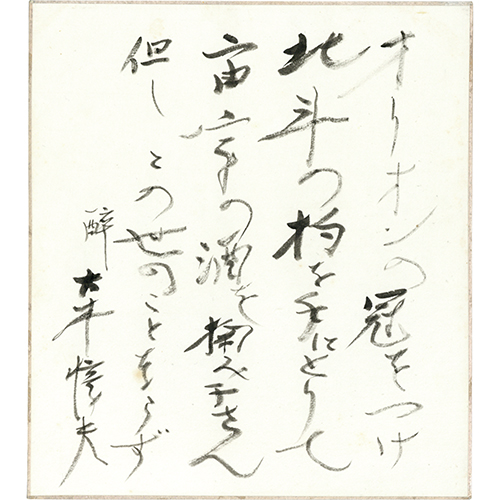 オリオンの冠をつけ
北斗の杓を手にとりて
宙宇の酒を掬べ干さん
但しこの世のことならず
酔 大木惇夫